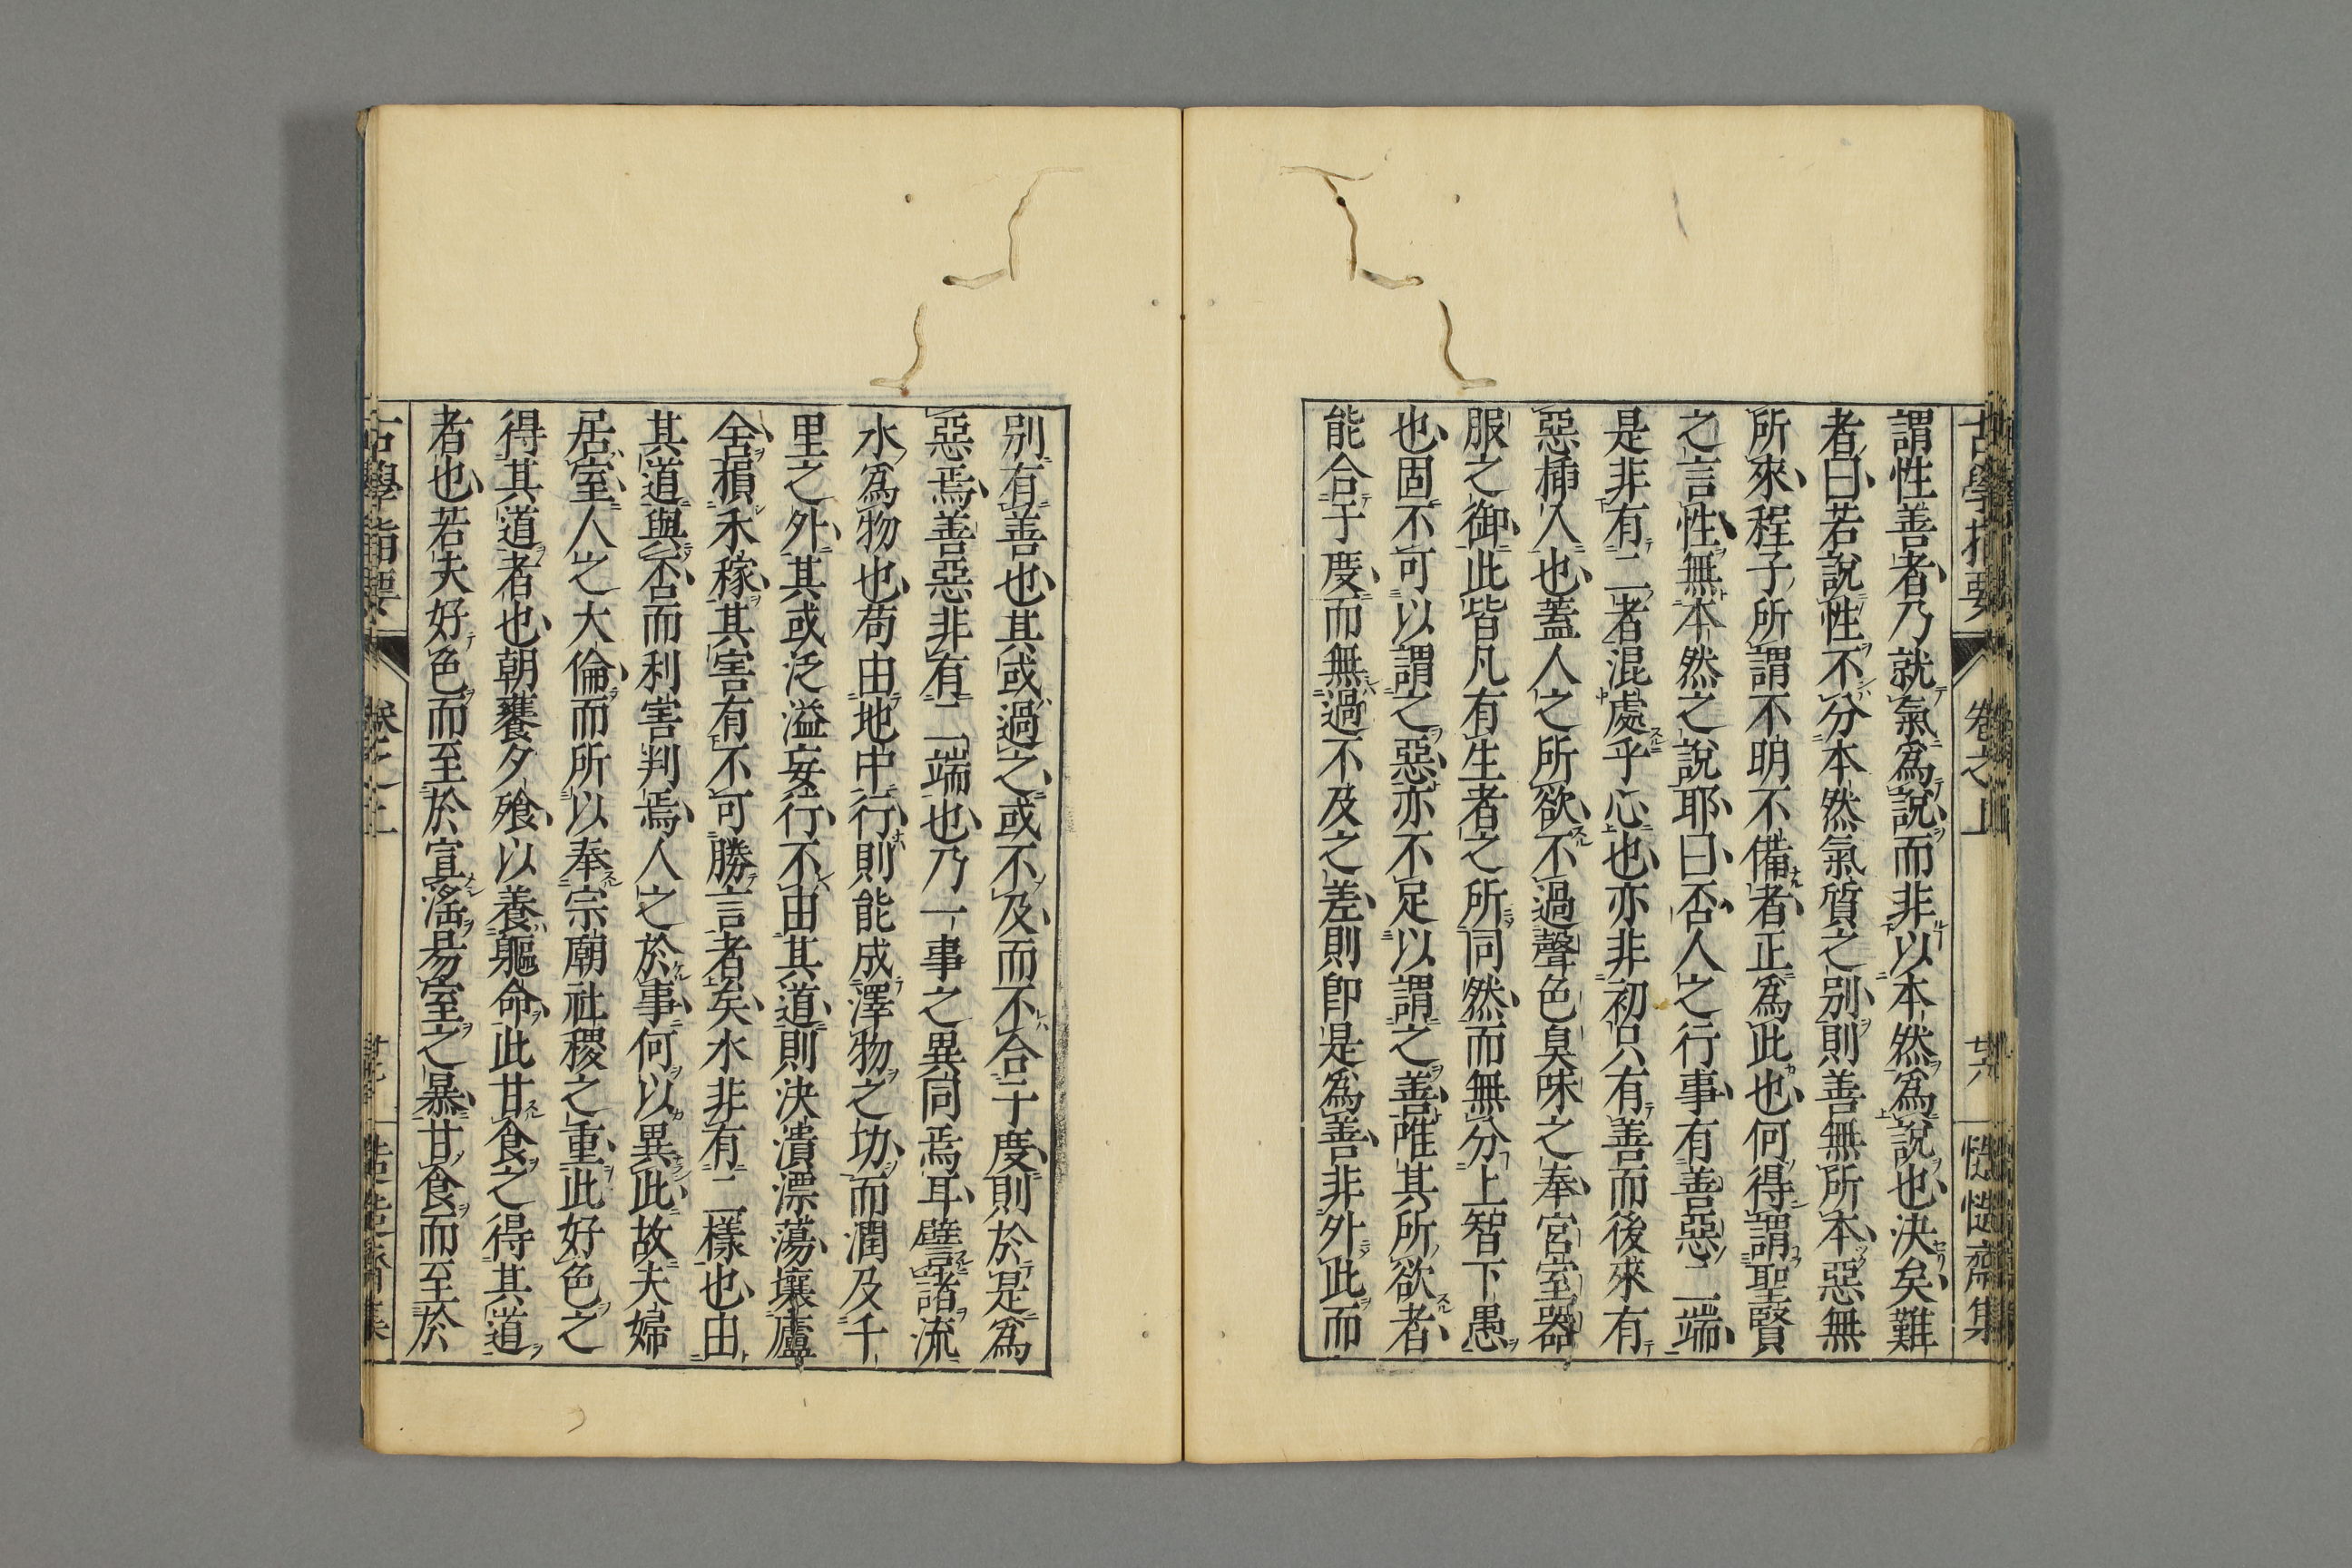 謂性善者乃就氣爲說而非以本然爲說也決矣難
者曰若說性不分本然氣質之別則善無所本惡無
所來程子所謂不明不備者正爲此也何得謂聖賢
之言性無本然之說耶曰否人之行事有善惡二端
是非有二者混處乎心也亦非初只有善而後來有
惡揷入也蓋人之所欲不過聲色臭味之奉宮室器
服之御此皆凡有生者之所同然而無分上智下愚
也固不可以謂之惡亦不足以謂之善唯其所欲者
能合于度而無過不及之差則卽是爲善非外此而
別有善也其或過之或不及而不合于度則於是爲
惡焉善惡非有二端也乃一事之異同焉耳譬諸流
水爲物也苟由地中行則能成澤物之功而潤及千
里之外其或泛溢妄行不由其道則決潰漂蕩壞廬
舍損禾稼其害有不可勝言者矣水非有二樣也由
其道與否而利害判焉人之於事何以異此故夫婦
居室人之大倫而所以奉宗廟社稷之重此好色之
得其道者也朝饔夕飱以養軀命此甘食之得其道
者也若夫好色而至於宣滛昜室之暴甘食而至於
古學指要 卷之上 廿六 慥慥齋集